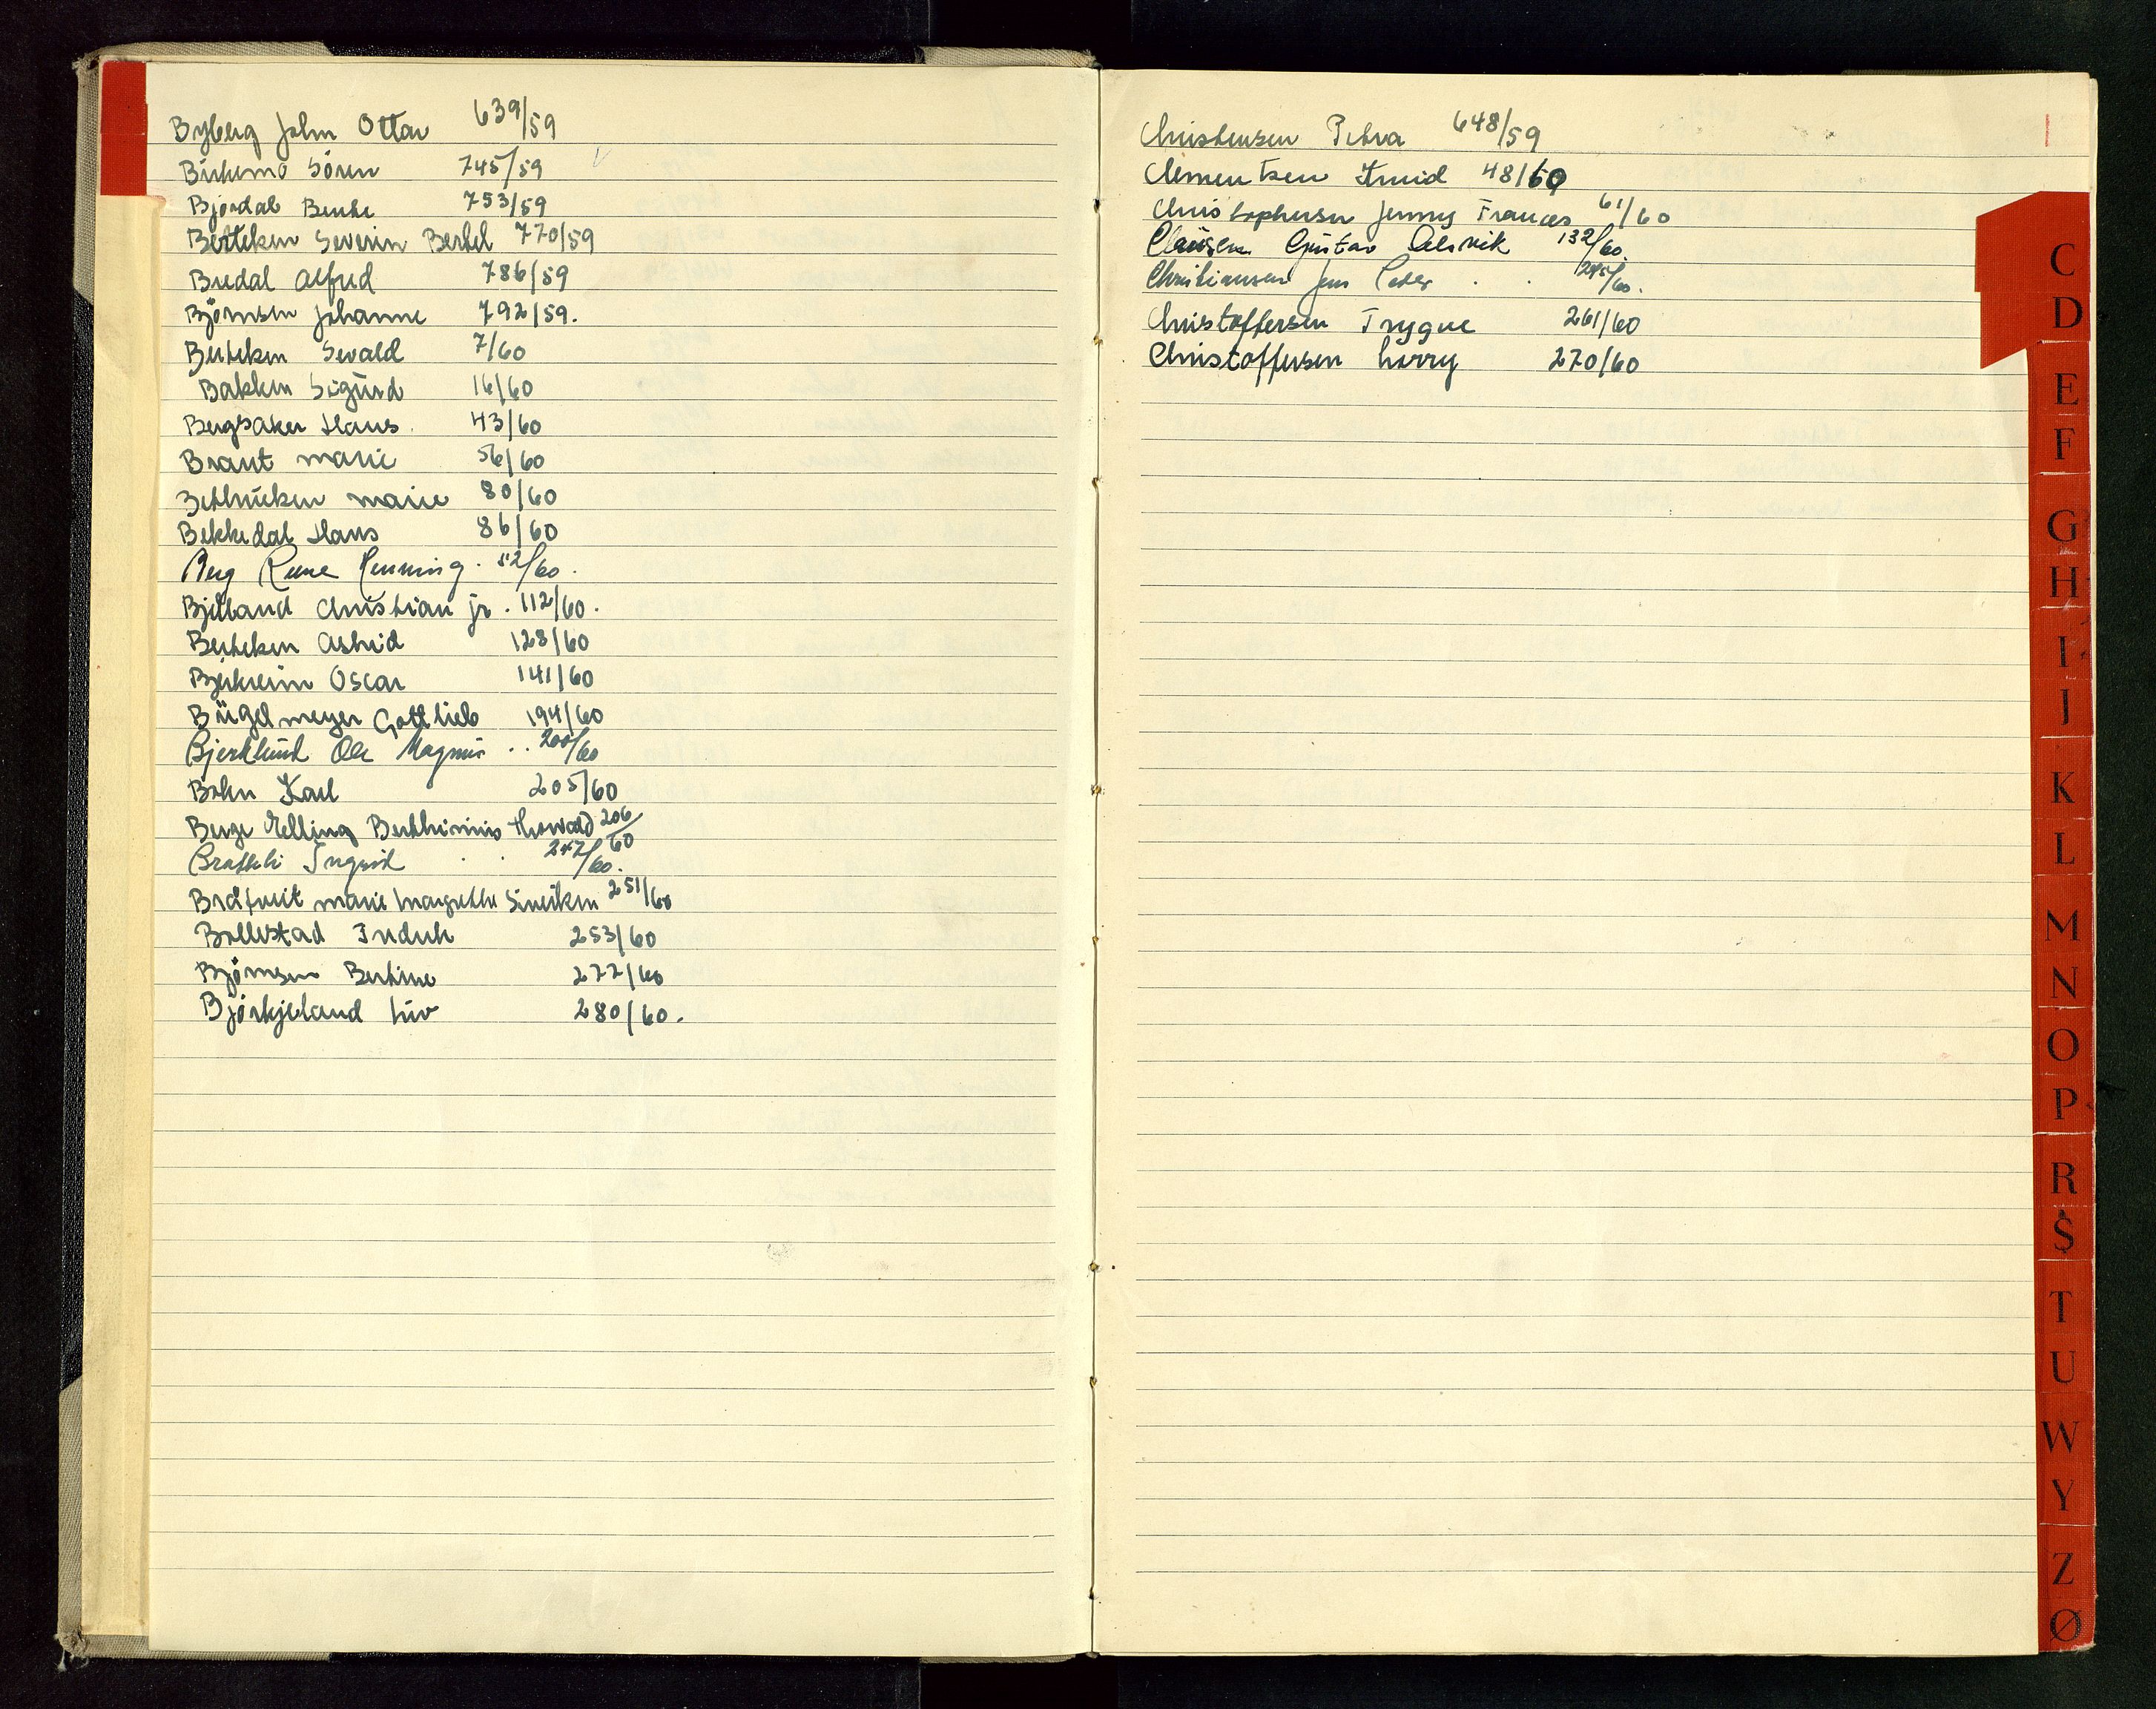 Byberg John Ottar 639/59
Birkemo Sören 745/59
Bjørdal Berte 753/59
Bertelsen Severin Bertel 770/59
Bredal Alfred 786/59
Björnsen Johanne 792/59.
Bertelsen Sevald 7/60
Bakken Sigurd 16/60
Bergsaker Hans. 43/60
Brant Marie 56/60
Marie 80/60
Bekkedal Hans 86/60
Berg Rune Henning. 52/60.
Bjelland Christian jr. 112/60.
Bertelsen Astrid 128/60
Bjerkreim Oscar 141/60
Bügelmeyer Gottlieb 194/60
Bjerklund Ole Magnus .. 200/60
Bohn Karl 205/60
Berge Elling Berthinius Thorvald 206/60
Brattli Ingrid . . 247/60.
Bråtveit Marie Margrethe 251/60
Bollestad Fredrik 253/60
Björnsen Bertine 277/60
Björkjeland Liv 280/60.
Christensen Petra 648/59
Clementsen 48/60
Christophersen Jenny Frances 61/60
Clausen Gustav 132/60.
Christiansen Jens Peder . . 245/60.
Christoffersen Trygve 261/60
Christoffersen Harry 270/60
C
D
E
F
G
H
I
J
K
L
M
N
O
P
R
S
T
U
W
Y
Z
Ø